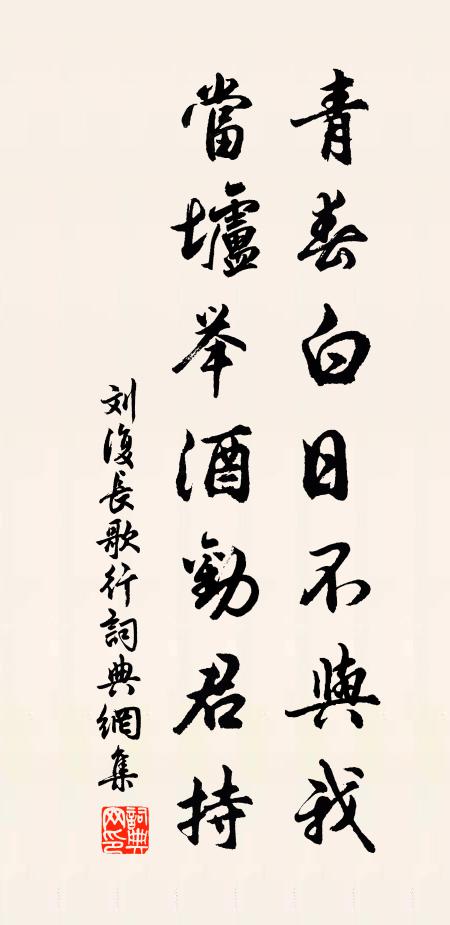 青春白日不與我
當壚举酒勸君持
刘復長歌行詞典網集
詞典网印